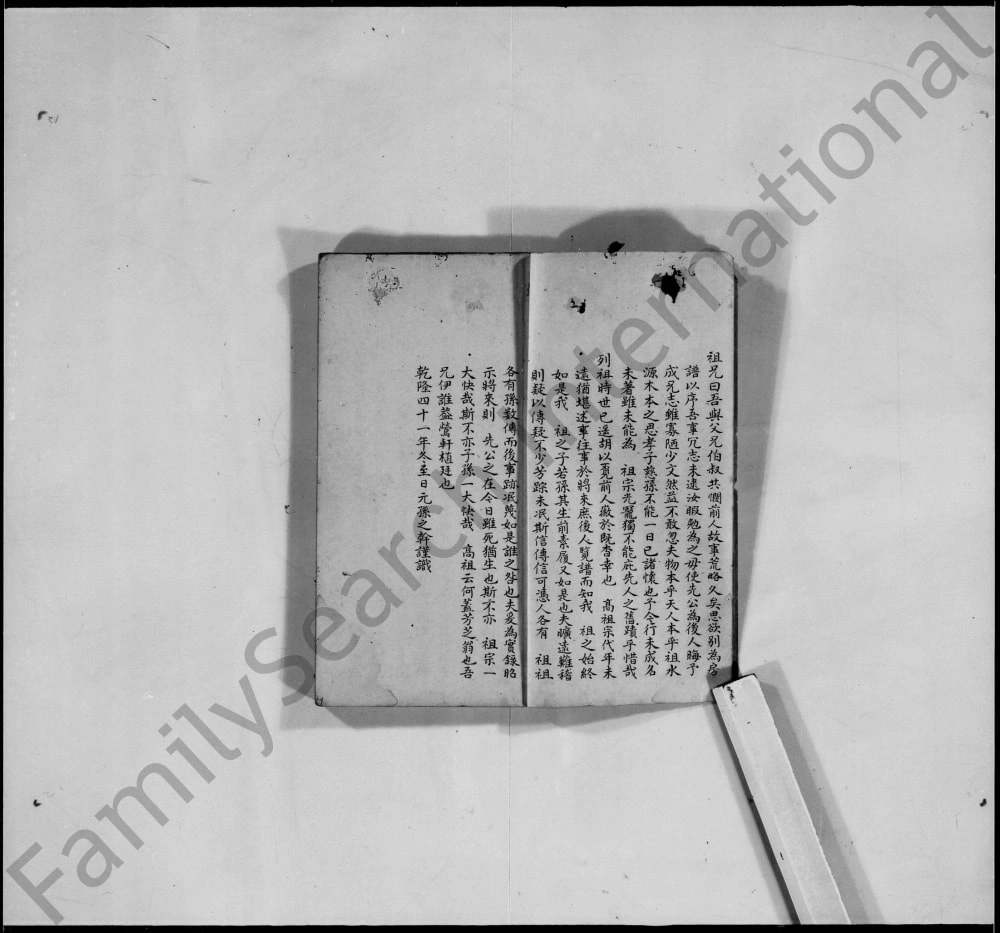 祖兄曰吾與父兄伯叔共憫前人故事荒略久矣思欲別為房
譜以序吾事冗志未逮汝暇勉為之毋使先公為後人晦予
成兄志雖寡陋少文然益不敢忽夫物本乎天人本乎祖水
源木本之思孝子慈孫不能一日已諸懷也予今行未成名
未著雖未能為 祖宗光寵獨不能庇先人之舊蹟乎惜哉
列祖時世已遙胡以覓前人徽於既杳幸也 高祖宗代年未
遠猶堪述事往事於將來庶後人覽譜而知我 祖之始終
如是我 祖之子若孫其生前素履又如是也夫曠遠難稽
則疑以傳疑不少芳踪未泯斯信傳信可憑人各有 祖祖
各有孫數傳而後事跡泯蔑如是誰之咎也夫爰為實錄昭
示將來則 先公之在今日雖死猶生也斯不亦 祖宗一
大快哉斯不亦子孫一大快哉 高祖云何蓋芳芝翁也吾
兄伊誰蓋鶯軒植廷也
乾隆四十一年冬至日元孫之幹謹識
FamilySearch International